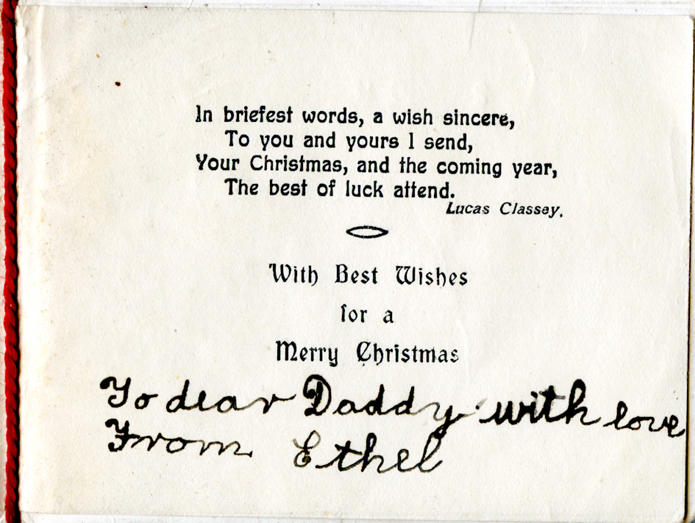 In briefest words, a wish sincere,
To you and yours I send,
Your Christmas, and the coming year,
The best of luck attend.
Lucas Classey.
With Best Wishes
for a
Merry Christmas
To dear Daddy with love
From Ethel